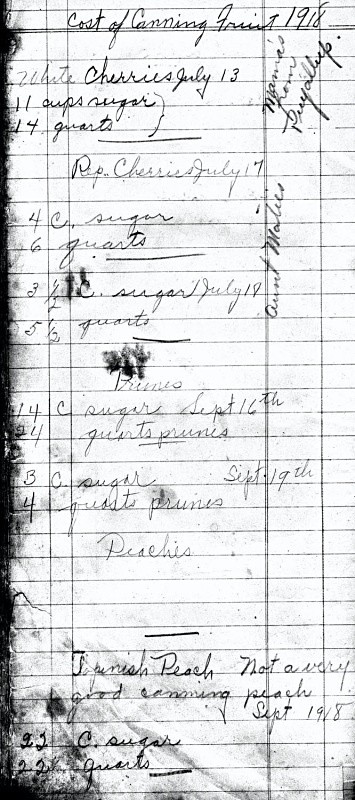 Cost of Canning Fruit 1918
White Cherries July 13
11 cups sugar
14 quarts
Mama's
from
Puyallup.
Rep. Cherries July 17
4 C. sugar
6 quarts
Aunt Mables
3 1/2 C. sugar July 18
5 1/2 quarts
Prunes
14 C sugar Sept 16th
24 quarts prunes
3 C. sugar Sept. 19th
4 quarts prunes
Peaches
Peach Not a very
good canning peach
Sept 1918
22 C. sugar
22 quarts